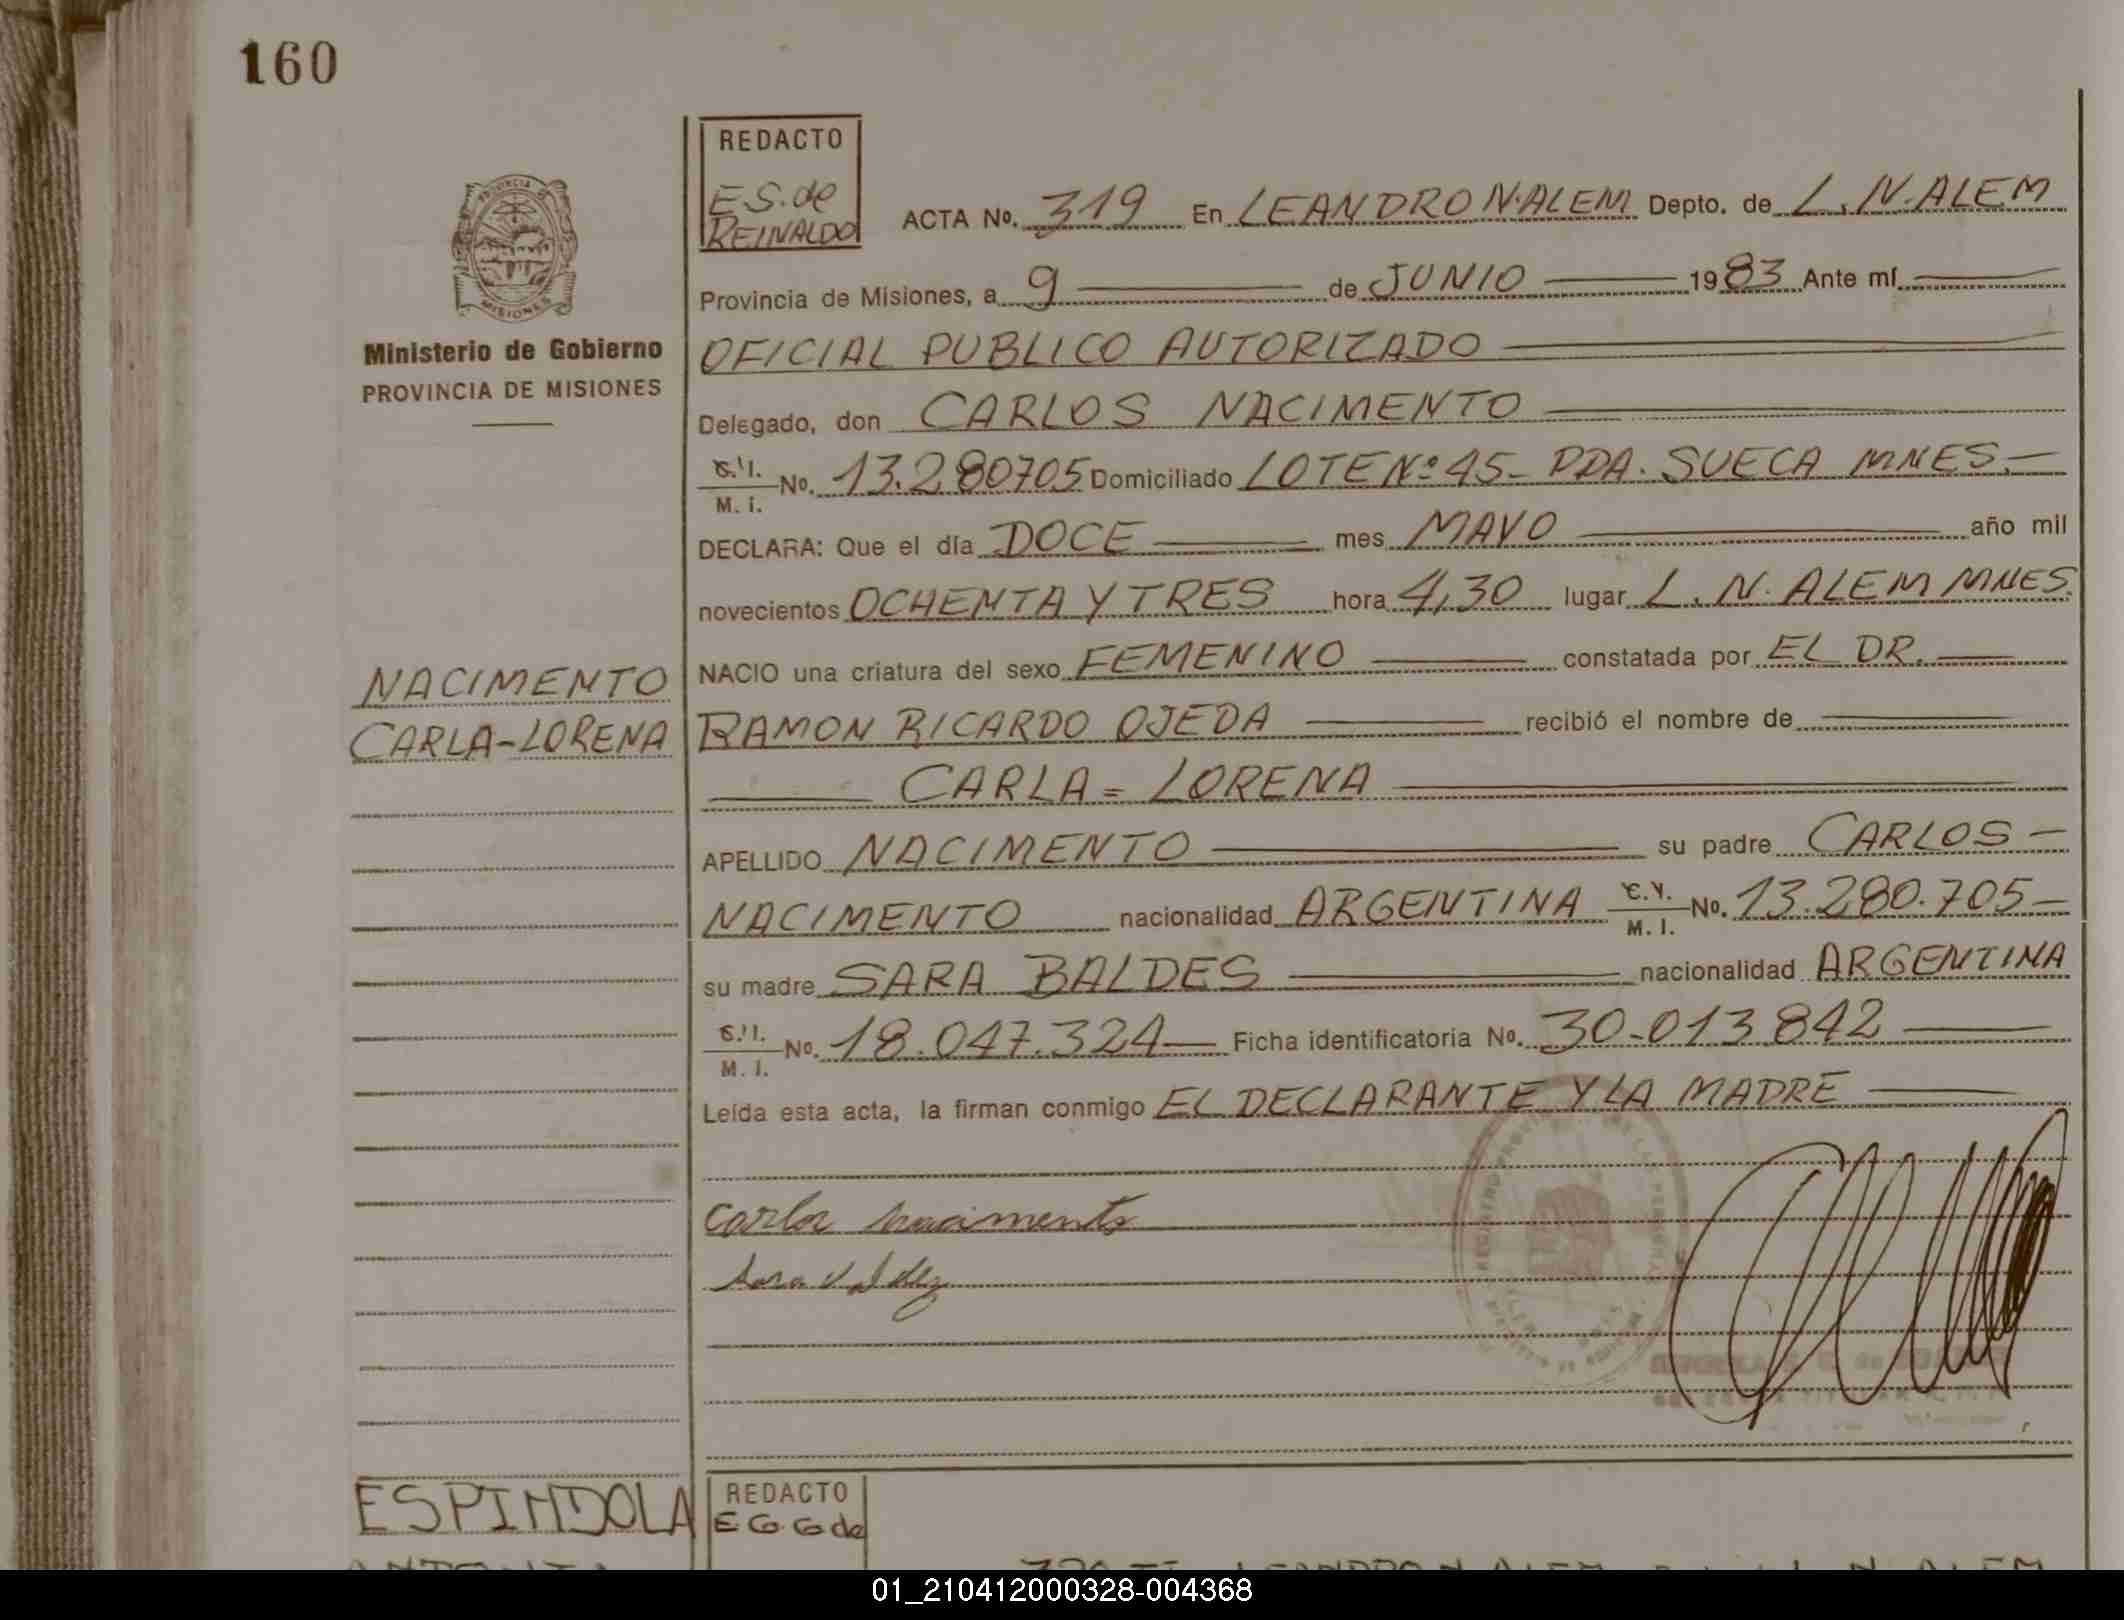 160
REDACTO
E.S. de
REINALDO
ACTA No. 319 En LEANDRO N. ALEM Depto. de L. N. ALEM
Provincia de Misiones, a 9 de JUNIO 1983 Ante mí
OFICIAL PUBLICO AUTORIZADO
Delegado, don CARLOS NACIMENTO
C. I.
M. I. No. 13.280705 Domiciliado LOTE Nº 45- PDA. SUECA MNES.-
DECLARA: Que el día DOCE mes MAYO año mil
novecientos OCHENTA Y TRES hora 4,30 lugar L. N. ALEM MNES.
NACIO una criatura del sexo FEMENINO constatada por EL DR.
RAMON RICARDO OJEDA recibió el nombre de
CARLA = LORENA
APELLIDO NACIMENTO su padre CARLOS -
NACIMENTO nacionalidad ARGENTINA C. I.
M. I. No. 13.280.705-
su madre SARA BALDES nacionalidad ARGENTINA
C. I.
M. I. No. 18.047.324 Ficha identificatoria No. 30-013842
Leída esta acta, la firman conmigo EL DECLARANTE Y LA MADRE
Carlos Nacimento
Sara Valdez
PROVINCIA DE
MISIONES
Ministerio de Gobierno
PROVINCIA DE MISIONES
NACIMENTO
CARLA-LORENA
ESPINDOLA
REDACTO
E G G de
01_210412000328-004368